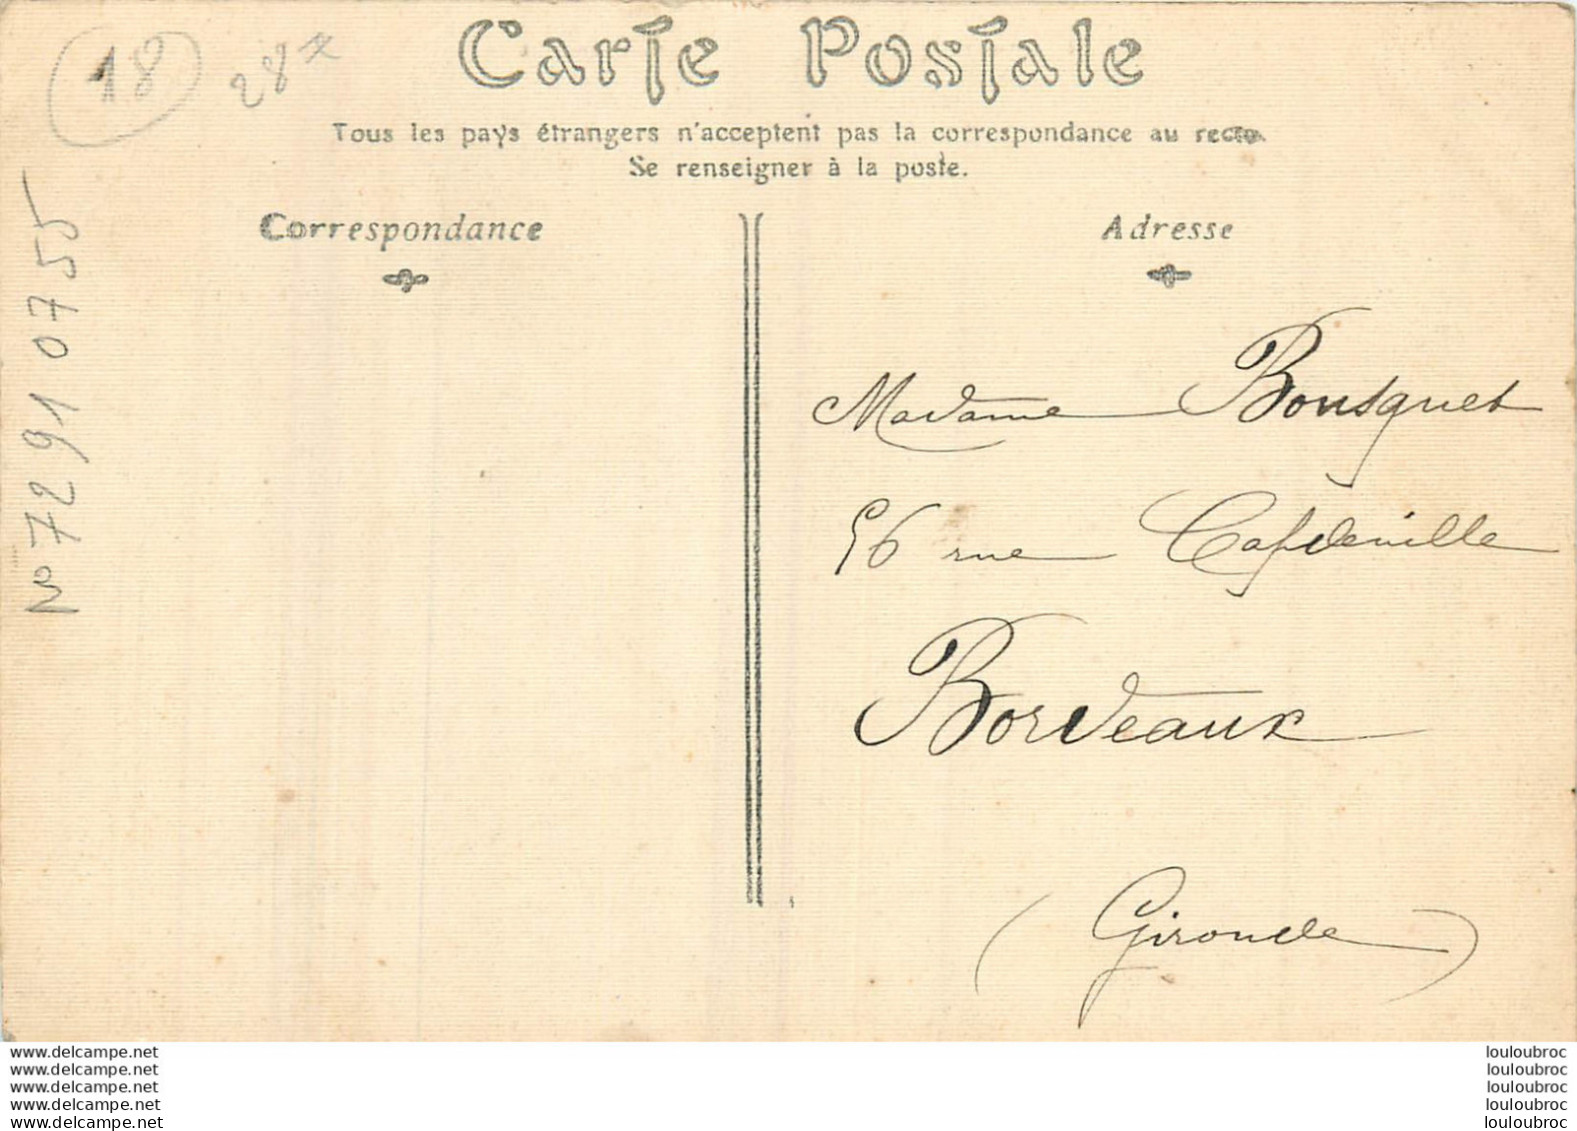 18
28
Carte Postale
Tous les pays étrangers n'acceptent pas la correspondance au recto.
Se renseigner à la poste.
Correspondance
Adresse
N° 7291 0755
Madame Bousquet
56 rue Capdeville
Bordeaux
(Gironde)
www.delcampe.net
www.delcampe.net
www.delcampe.net
www.delcampe.net
www.delcampe.net
louloubroc
louloubroc
louloubroc
louloubroc
louloubroc